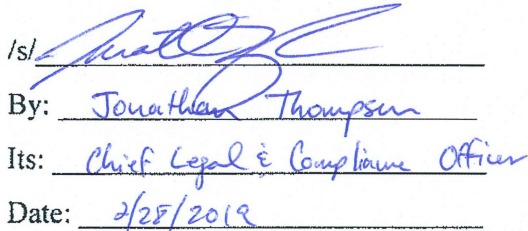 /s/
By: Jonathan Thompson
Its: Chief Legal & Compliance Officer
Date: 2/28/2019